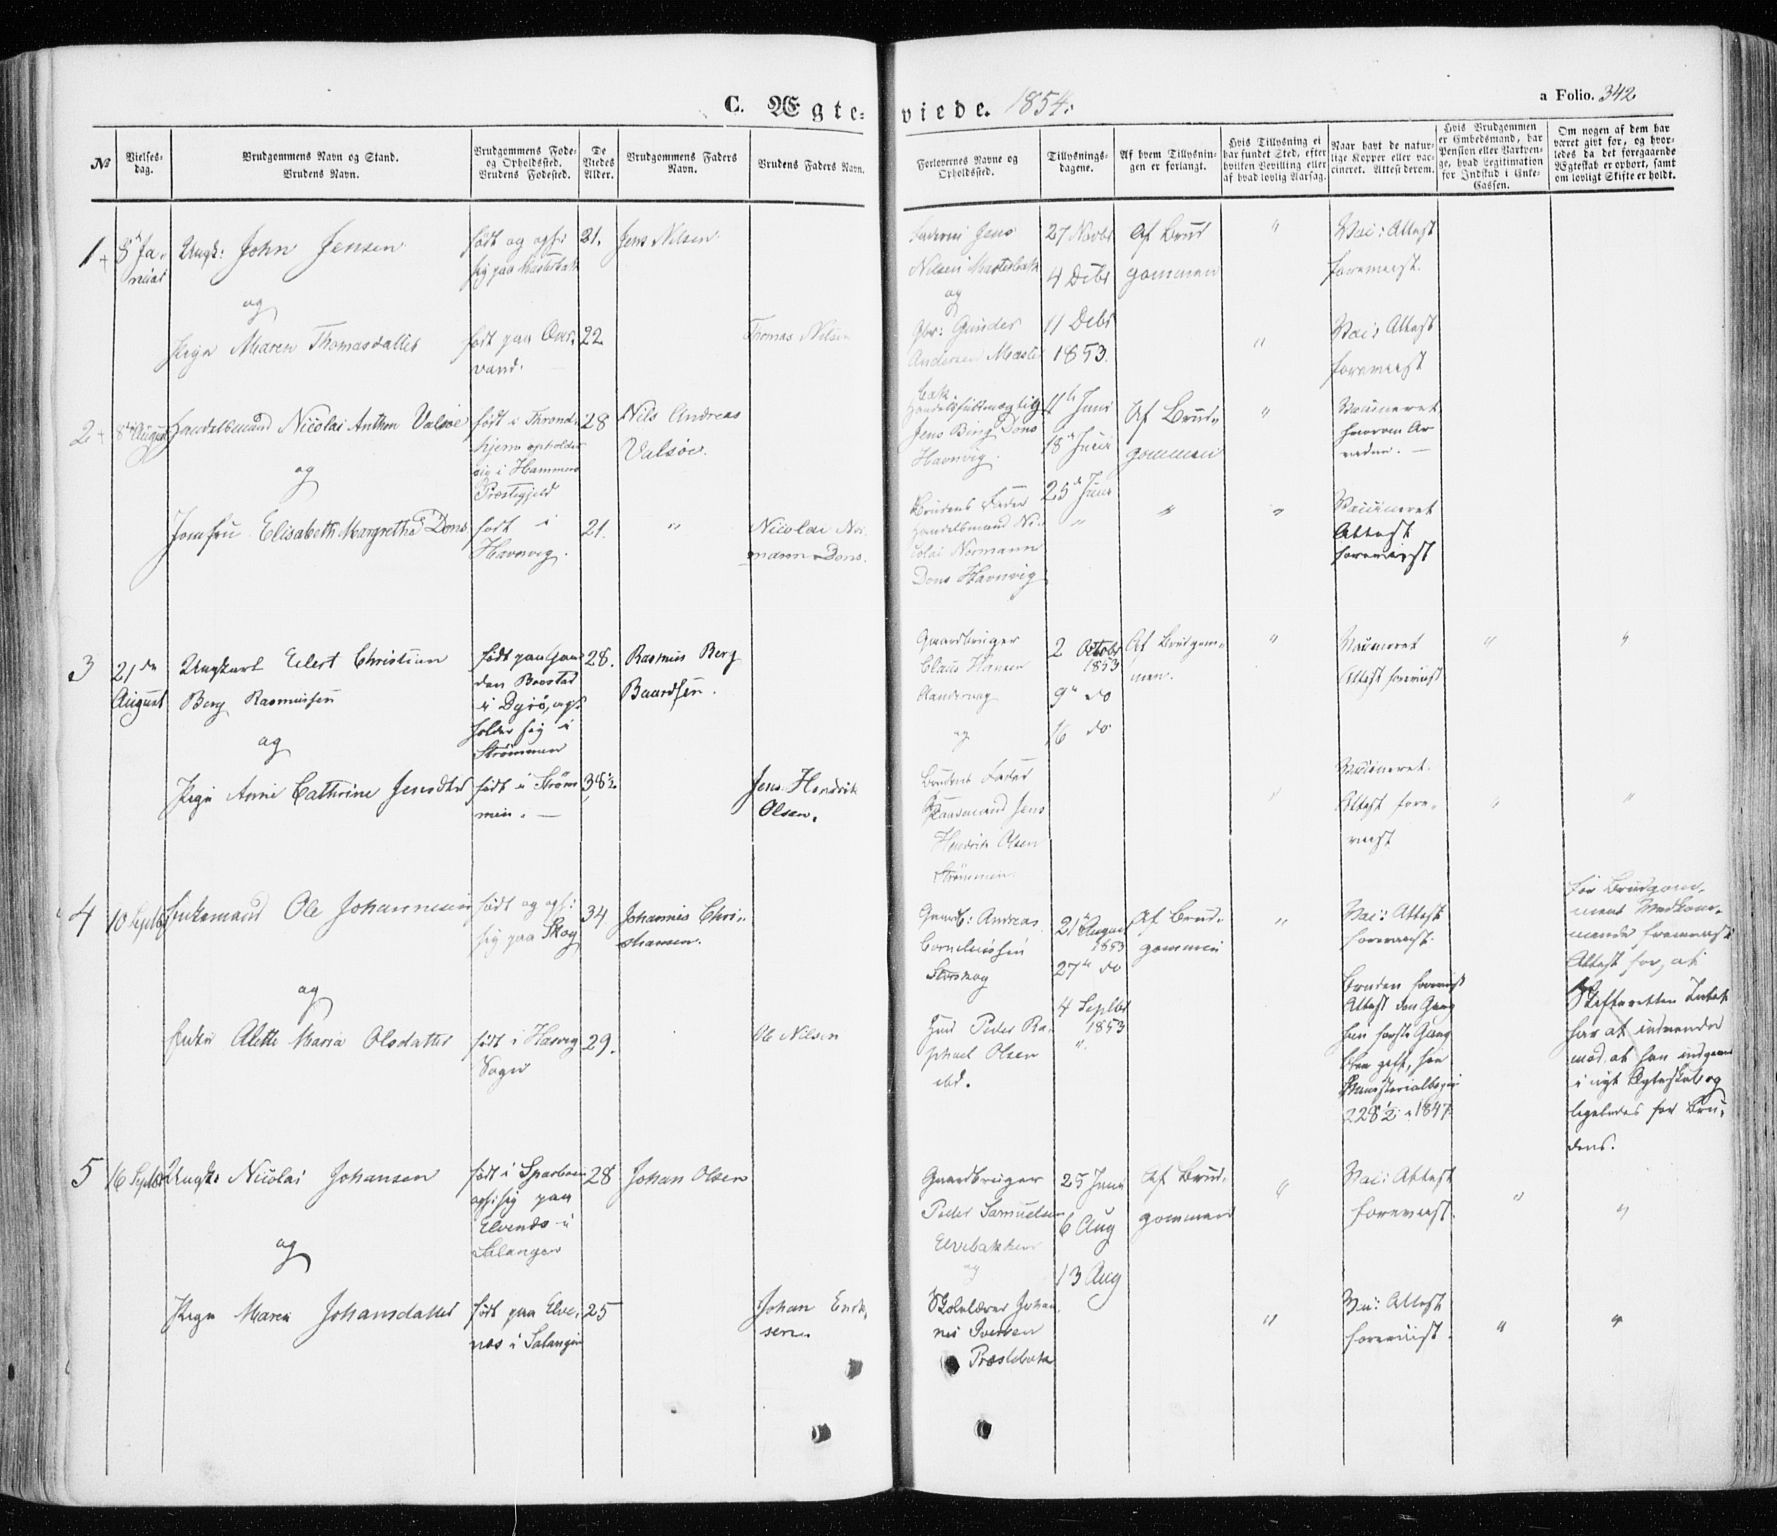 C. Ægte-
viede. 1854.
a Folio. 342
No
Vielses-
dag.
Brudgommens Navn og Stand.
Brudens Navn.
Brudgommens Føde-
og Opholdssted.
Brudens Fødested.
De
Viedes
Alder.
Brudgommens Faders
Navn.
Brudens Faders Navn.
Forlovernes Navne og
Opholdssted.
Tillysnings-
dagene.
Af hvem Tillysnin-
gen er forlangt.
Hvis Tillysning ei
har fundet Sted, efter
hvilken Bevilling eller
af hvad lovlig Aarsag.
Naar havt de natur-
lige Kopper eller vac-
cineret. Attest derom.
Hvis Brudgommen
er Embedsmand, har
Pension eller Vartpen-
ge, hvad Legitimation
for Indskud i Enke-
Cassen.
Om nogen af dem har
været gift før, og hvor-
ledes da det foregaaende
Ægteskab er ophørt, samt
om lovligt Skifte er holdt.
1
Ja-
nuar
Ungk: John Jensen
og
Pige Maren Thomasdatter
født og oph:
sig paa
21.
født paa
vand.
22
Jens Nilsen
Thomas Nilsen
Jens
Nilsen
og
Gbr: Gunder
Andersen
27 Novbr
4 Debr
11 Debr
1853.
Af Brud
gommen
"
"
Vac: Attest
forevist.
Vac: Attest
forevist
2
8de August
Handelsmand Nicolai Anthon Valsøe
og
Jomfru Elisabeth Margrethe Dons
født i Thrond-
hjem opholder
sig i Hammers
Præstegjeld
28
født i
Havnvig.
21.
Nils Andreas
Valsøe.
"
Nicolai Nor-
mann Dons.
Handelsfuldmægtig
Jens Bing Dons
Havnvig.
Brudens Fader
Handelsmand Ni-
colai Normann
Dons Havnvig
11te Juni
18de Juni
25de Juni
"
Af Brud-
gommen
"
"
"
Vaccineret
hvorom
Vaccineret
Attest
forevist
3
21de
August
Ungkarl Eilert Christian
Berg Rasmussen
og
Pige Anne Cathrine Jensdtr
født paa Gaar
den
i Dyrø, op-
holder sig i
Strømmen
28.
født i Strøm
men.
38½
Rasmus Berg
Baardsen.
Jens Hendrik
Olsen.
Gaardbruger
Claus Hansen
og
Brudens Fader
Gaardmand Jens
Hendrik Olsen
Strømmen.
2 Octobr
1853
9de do
16 do
Af Brudgom-
men.
"
"
Vaccineret
Attest forevist
Vaccineret.
Attest fore-
viist
"
"
"
"
4
10 Septbr
Enkemand Ole Johannesen
og
Enke Alette Maria Olsdatter
født og oph:
sig paa Skog
34
født i Hasvig
Sogn
29.
Johannes Chri-
stiansen.
Ole Nilsen
Gaardb: Andreas
Corneliussen
og Peder Ra-
phael Olsen
ibd.
21 August
1853
27de do
4 Septbr
1853
"
Af Brud-
gommen
"
Vac: Attest
forevist.
Bruden forevist
Attest den Gang
hun første Gang
blev gift, see
Ministerialbogen
228½ 1847
For Brudgom-
mens Vedkom-
mende fremvist
Attest for, at
Skifteretten Intet
har at indvende
mod, at han indgaaer
i nyt Ægteskab og
ligeledes for Bru-
dens.
5
16 Septbr
Ungk: Nicolai Johansen
og
Pige Maren Johansdatter
født i Sparboen
oph: sig paa
Elvenes i
Salangen
28
født paa Elve-
næs i Salangen
25
Johan Olsen
Johan Erik-
sen
Gaardbruger
Peder Samuelsen
Elvebakken
og
Skolelærer Johan-
nes Iversen
Præstebakk
25 Juni
6 Aug
13 Aug
Af Brud-
gommen
"
"
Vac: Attest
forevist.
Vac: Attest
forevist.
"
"
"
"